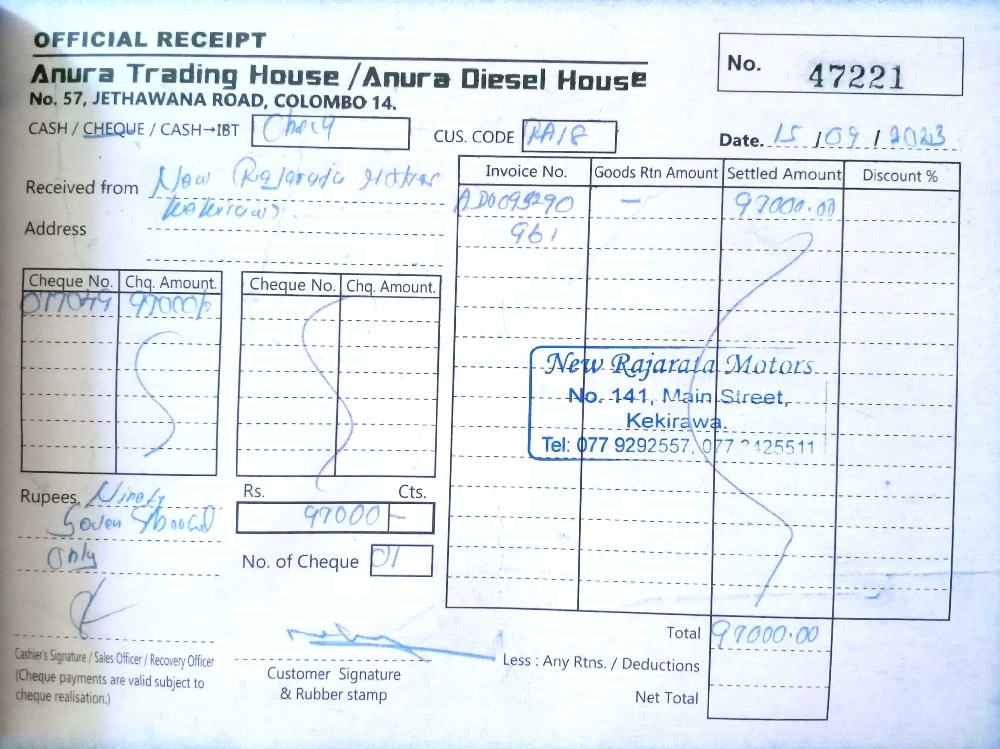 OFFICIAL RECEIPT
Anura Trading House / Anura Diesel House
No. 57, JETHAWANA ROAD, COLOMBO 14.
No. 47221
CASH / CHEQUE / CASH→IBT
CUS. CODE RA/8
Date. 15 / 09 / 2023
Received from New Rajarata Motors
Kekirawa.
Address
Invoice No. Goods Rtn Amount Settled Amount Discount %
— 97000.00
961
Cheque No. Chq. Amount. Cheque No. Chq. Amount.
97000/-
New Rajarata Motors
No. 141, Main Street,
Kekirawa.
Tel: 077 9292557, 077
Rupees. Ninety
Seven Thousand
Only
Rs. Cts.
97000 -
No. of Cheque 01
Total 97000.00
Less : Any Rtns. / Deductions
Net Total
Cashier's Signature / Sales Officer / Recovery Officer
(Cheque payments are valid subject to
cheque realisation.)
Customer Signature
& Rubber stamp